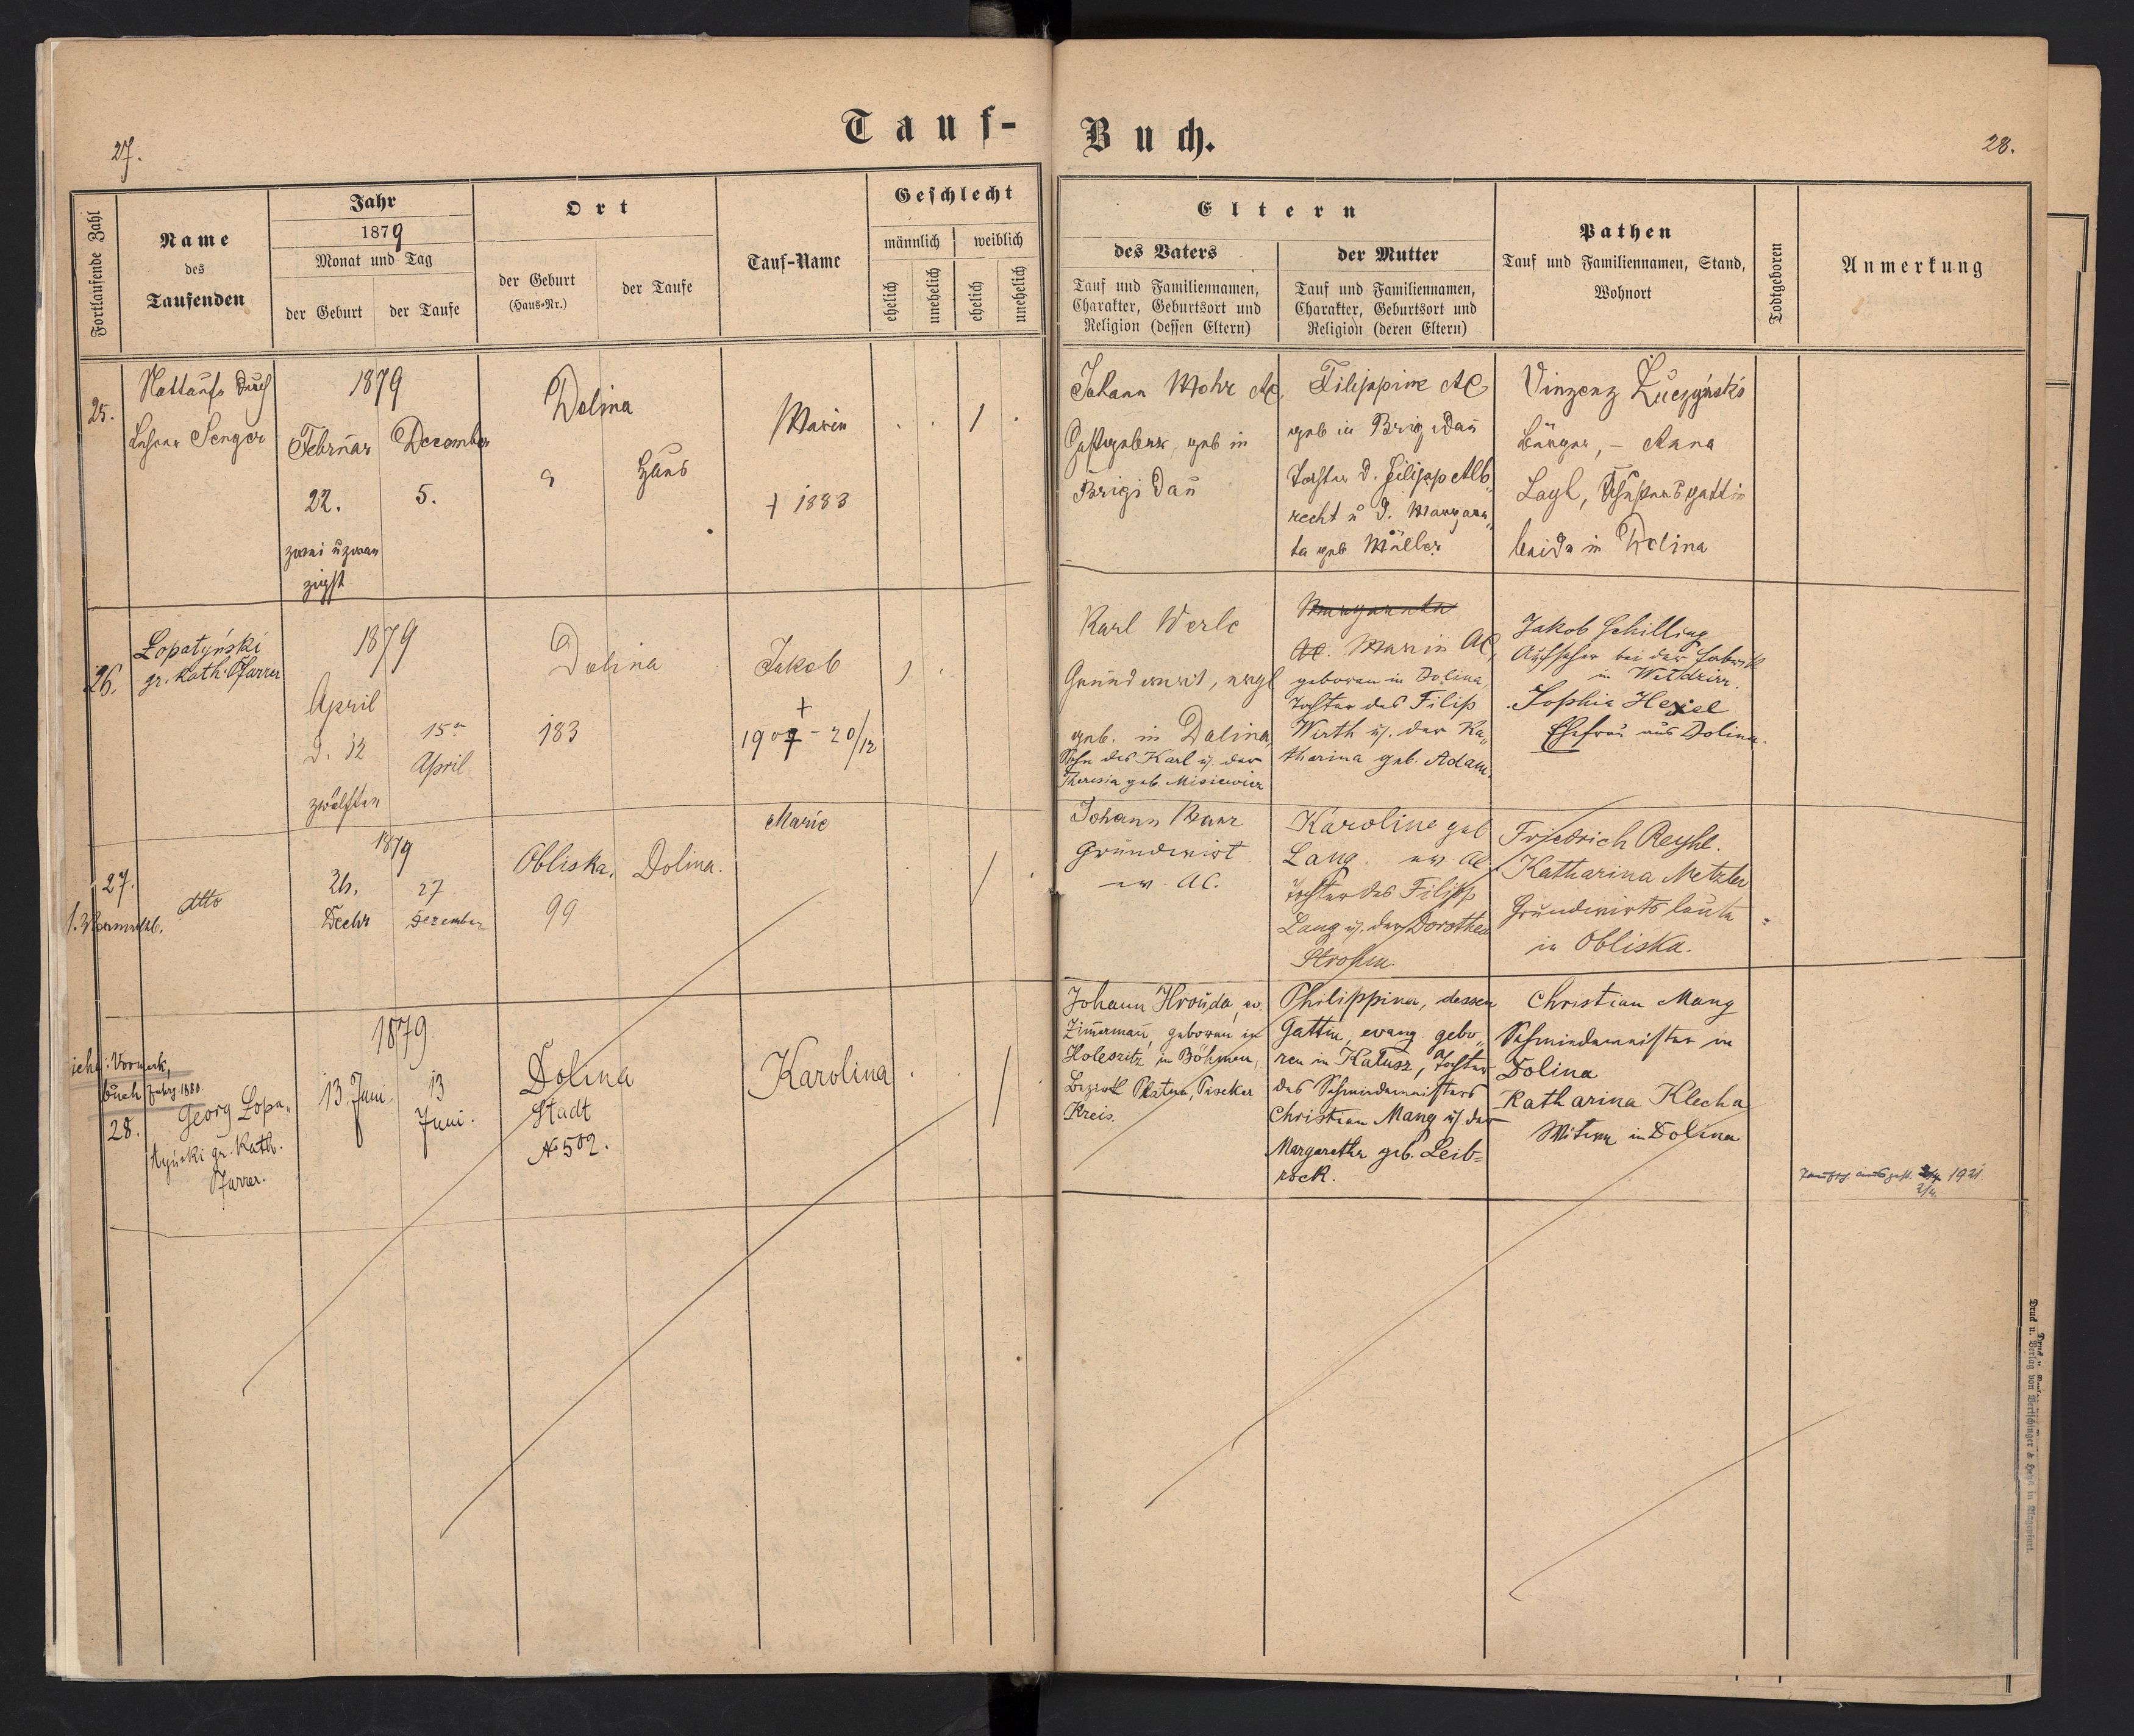 Tauf-
27.
Fortlaufende Zahl
Name
des
Taufenden
Jahr
1879
Monat und Tag
der Geburt
der Taufe
Ort
der Geburt
(Haus-Nr.)
der Taufe
Tauf-Name
Geschlecht
männlich
weiblich
ehelich
unehelich
ehelich
unehelich
25.
Nottaufe durch
Lehrer Senger
1879
Februar
22.
zwei u zwan
zigst
December
5.
Dolina
8
Haus
Marie
+ 1883
26.
Łopatyński
gr. Kath. Pfarrer
1879
April
d. 12
zwölften
15ten
April
Dolina
183
Jakob
+
1907 - 20/12
27.
dtto
1879
26.
Decbr
27
Dezember
Obliska.
99
Dolina.
Marie
Vormerk,
buch Jahrg. 1880.
28.
Georg Łopa„
tyński gr. Kath.
Pfarrer.
1879.
13. Juni.
13
Juni.
Dolina
Stadt
No 502.
Karolina
Buch.
28.
Eltern
des Vaters
Tauf und Familiennamen,
Charakter, Geburtsort und
Religion (dessen Eltern)
der Mutter
Tauf und Familiennamen,
Charakter, Geburtsort und
Religion (deren Eltern)
Pathen
Tauf und Familiennamen, Stand,
Wohnort
Todtgeboren
Anmerkung
Johann Mohr AC,
Gastgeber, geb in
Brigidau
Filippine AC
geb in Brigidau
Tochter d. Filipp Alb„
recht u d. Margare„
ta geb Müller
Vinzenz Łuczyński
Bürger, - Anna
Lagl,
beide in Dolina
Karl Werle
Grundwirt, evgl
geb. in Dolina,
Sohn des Karl u. der
Theresia geb. Misiewicz
Margareta
AC. Marie AC,
geboren in Dolina,
Tochter des Filip
Wirth u. der Ka„
tharina geb. Adam.
Jakob Schilling
Aufseher bei der Fabrik
in Weldzirz.
Sophia Hexel
Ehefrau aus Dolina.
Johann Maur
Grundwirt
ev. AC.
Karoline geb
Lang. ev. AC.
Tochter des Filipp
Lang u. der Dorothea
Strohm.
Friedrich Reyhl.
Katharina Metzler
Grundwirtsleute
in Obliska.
Johann Hrouda, ev.
Zimmermann, geboren in
Holeszitz in Böhmen,
Bezirk Platen, Piseker
Kreis.
Philippina, dessen
Gattin, evang. gebo„
ren in Kalusz, Tochter
des Schmiedemeisters
Christian Mang u. der
Margaretha geb. Leib=
rock.
Christian Mang
Schmiedemeister in
Dolina
Katharina Klecha
Witwe in Dolina
Taufsch. ausgest. 2/4. 1921.
Druck u. Verlag von Bertschinger & Heyn in Klagenfurt.